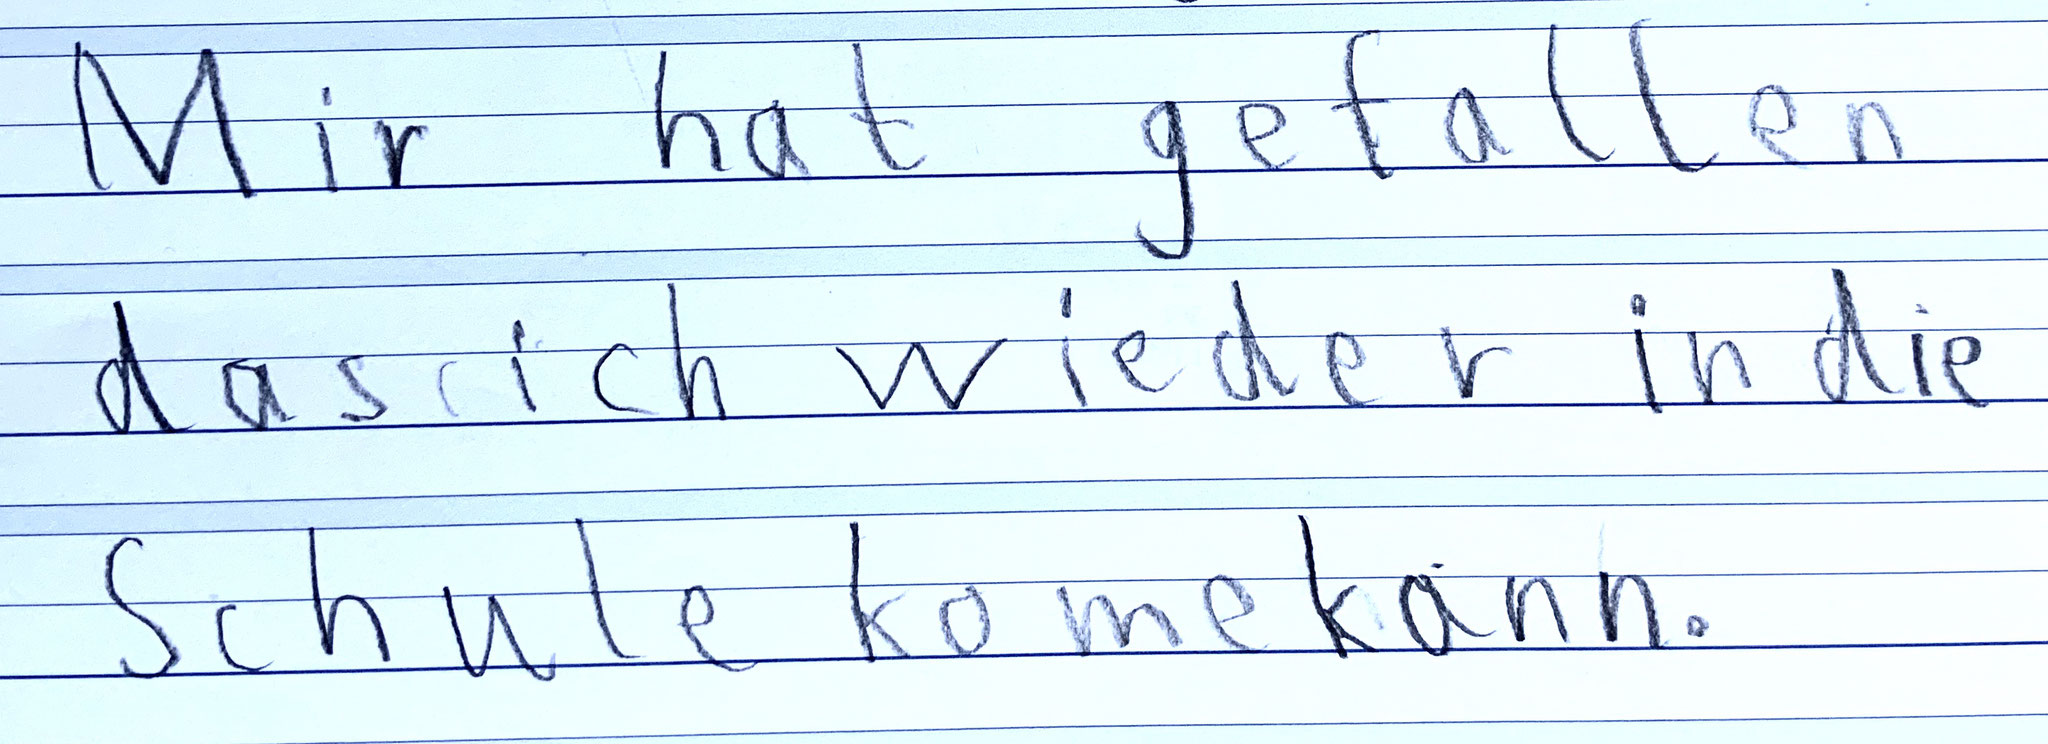 Mir hat gefallen
das ich wieder in die
Schule kome kann.